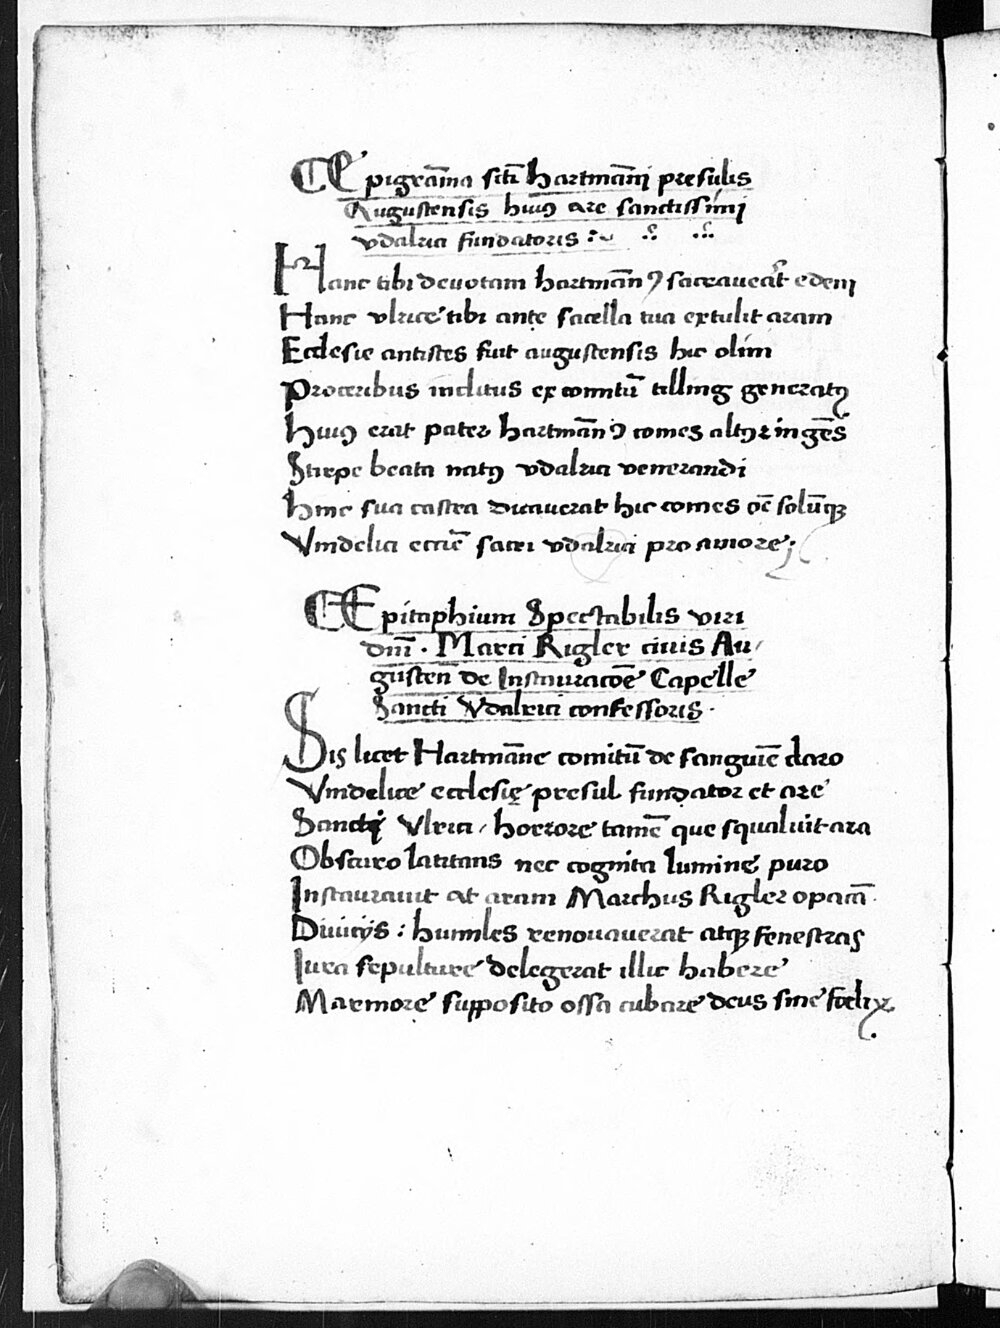 Epigrāma sc̄ti Hartmān̄i presulis
Augustensis huiꝰ are sanctissimi
vdalrici fundatoris :~
Hanc tibi deuotam hartmānꝰ sacrauerat edem
Hanc vlrice tibi ante sacella tua extulit aram
Ecclesie antistes fuit augustensis hic olim
Proceribus inclitus ex comitū tilling generatꝰ
Huiꝰ erat pater hartmānꝰ comes altꝰ ⁊ ingēs
Stirpe beata natꝰ vdalrici venerandi
Hinc sua castra dicauerat hic comes oē solūqꝫ
Vindelici eccīe sacri vdalrici pro amore ;
Epitaphium Spectabilis viri
dn̄i · Marci Rigler ciuis Au/
gusteñ de Instauracōe Capelle
Sancti Vdalrici confessoris ·
Sis licet Hartmāne comitū de sanguīe claro
Vindelice ecclesię presul fundator et are
Sancti Vlrici / horrore tamē que squaluit ara
Obscuro latitans nec cognita lumine puro
Instaurauit at aram Marchus Rigler opacā
Diuicijs : humiles renouauerat atqꝫ fenestras
Iura sepulture delegerat illic habere
Marmore supposito ossa cubare deus sine foelix .